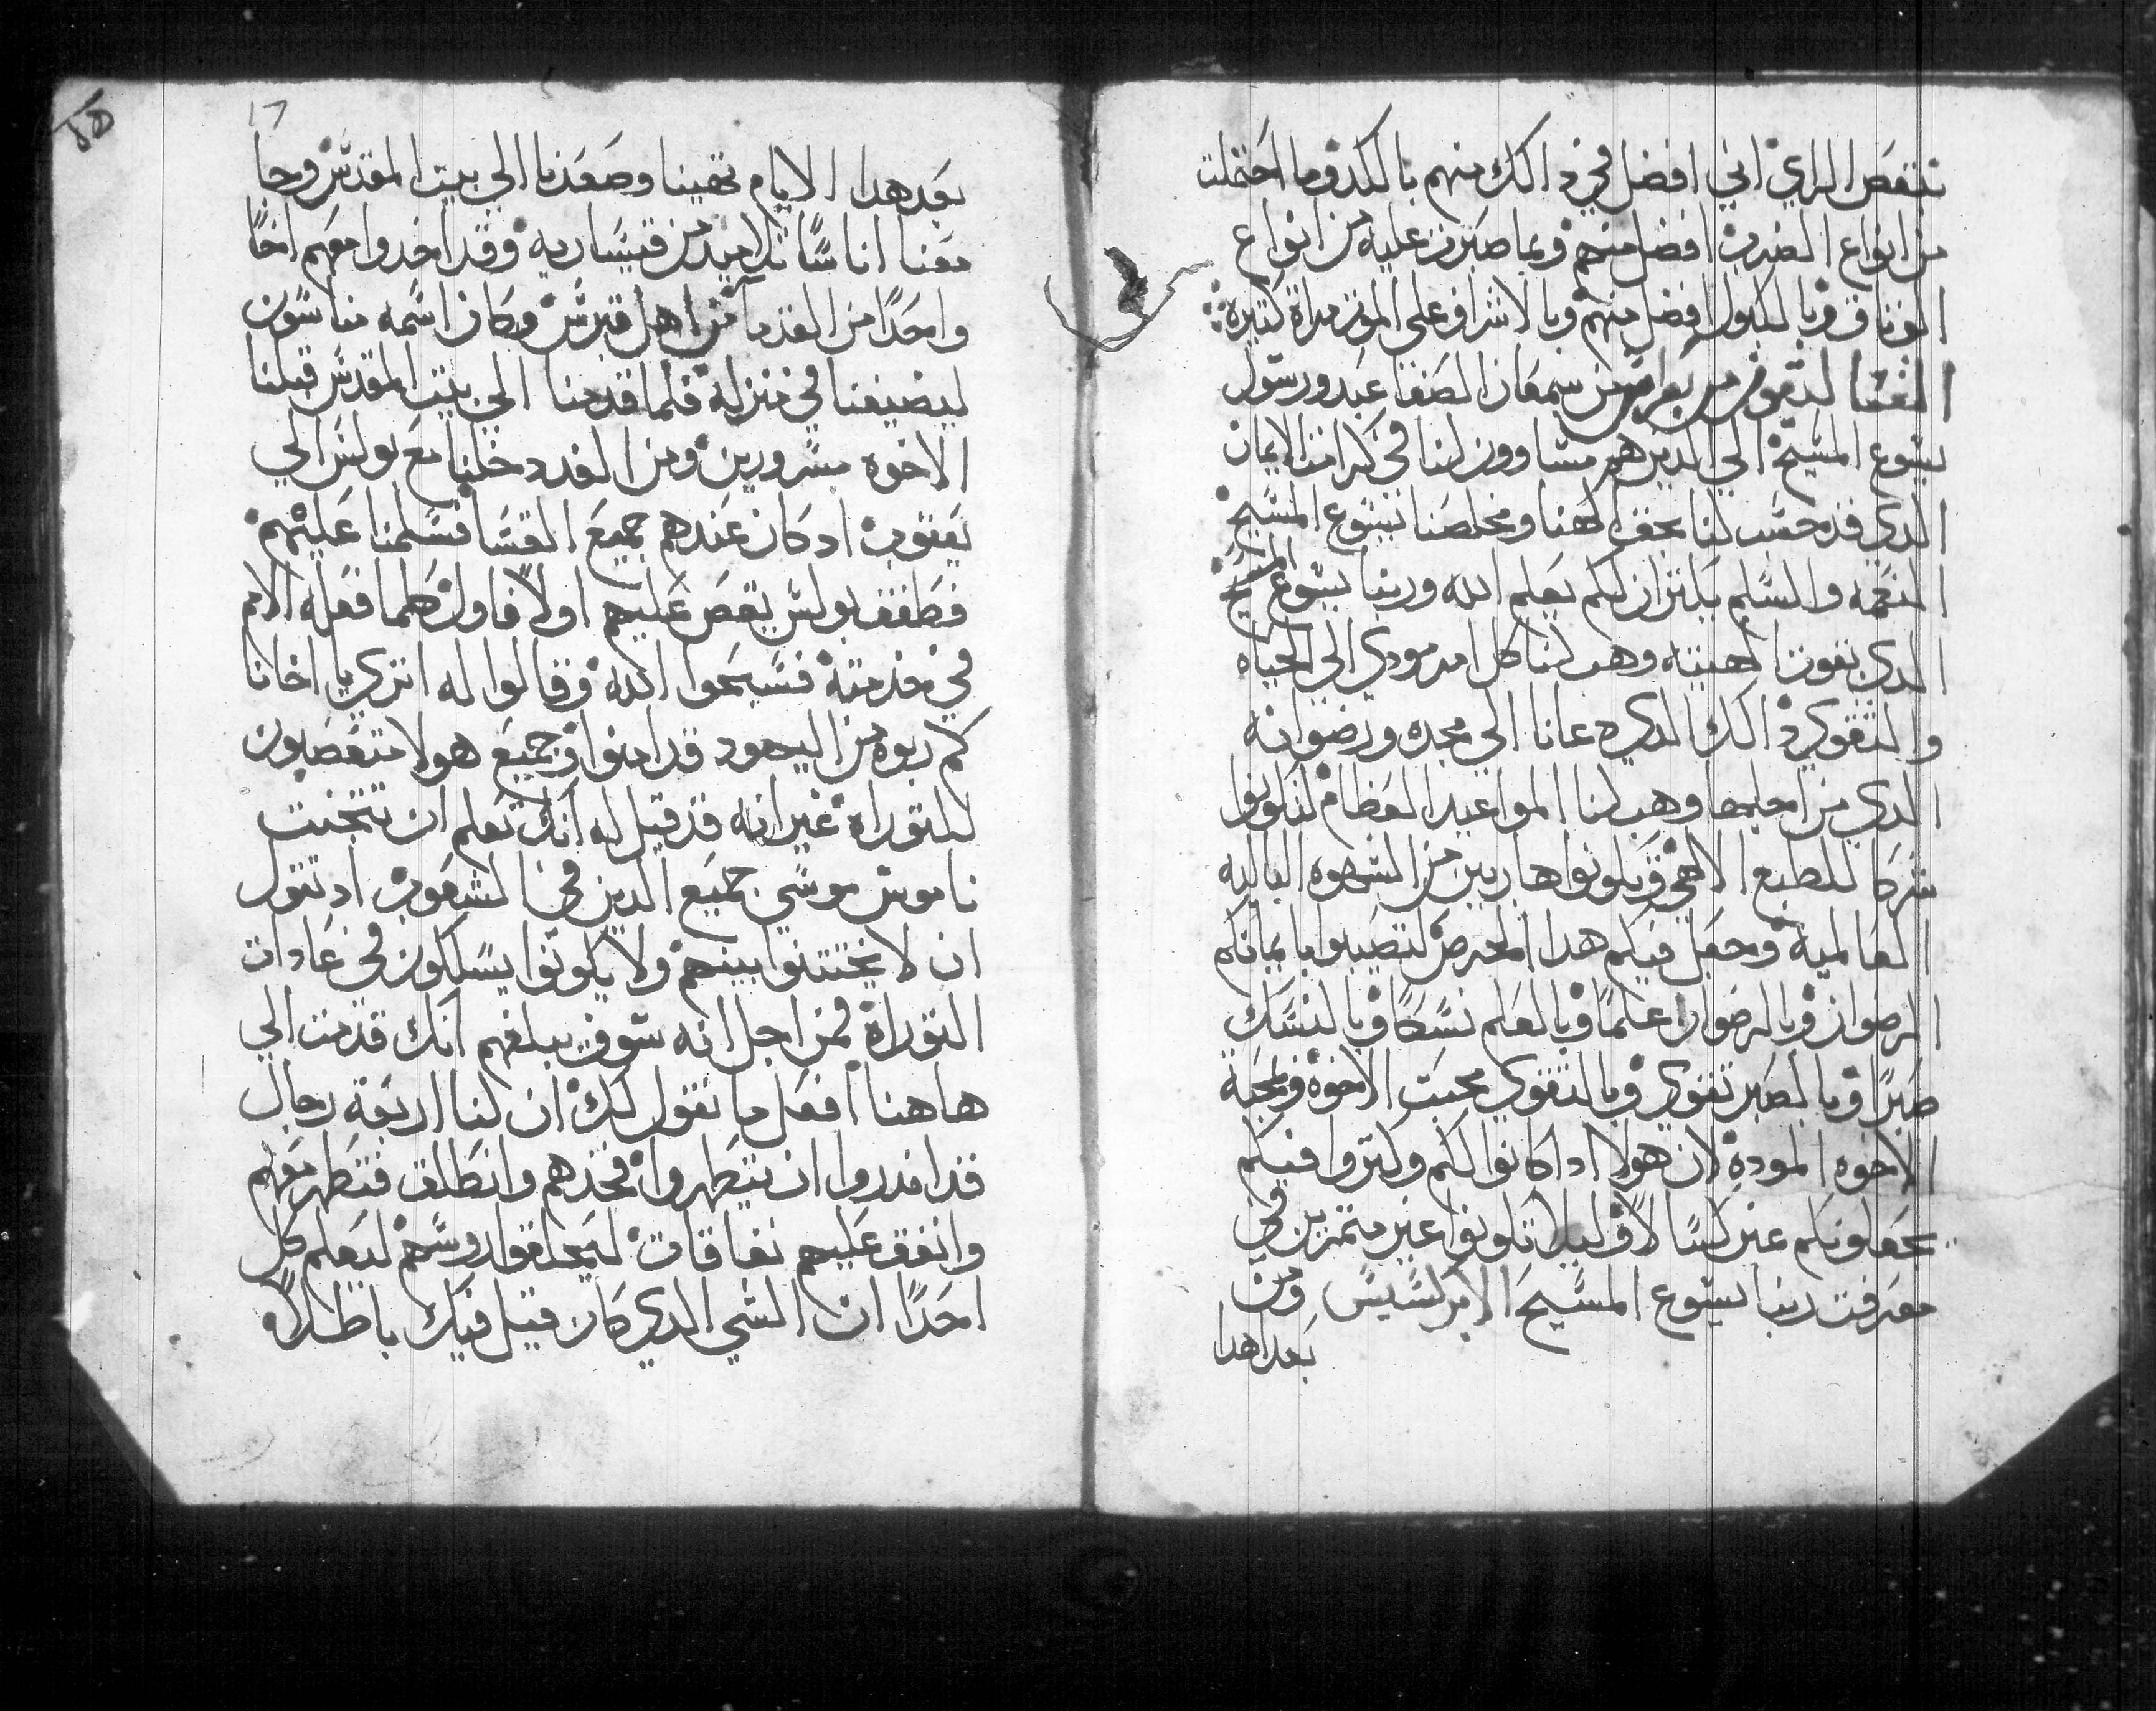 بنقص الراي اني افضل في ذالك منهم بالكد وما احتملت
من انواع الضرب افضل منهم وبما صبرت عليه من انواع
الوثاق وبالكبول افضل منهم وبالاشراف على الموت مراة كتيرة
يسوع المسيح الي الدين هم مساوون لنا في كرامت الايمان
الدي قد حسب لنا بحق الهنا ومخلصنا يسوع المسيح
النعمه والسلم يكتران لكم بعلم الله وربنا يسوع المسيح
الدي بقوت الهيته وهب لنا كل امر مودي الى الحياه
والتقوي ذالك الدي دعانا الي مجده ورضوانه
الدي من اجلها وهب لنا المواعيد العظام لتكونوا
شركا للطبع الالاهي وتكونوا هاربين من الشهوه الباليه
العالمية وجعل فيكم هدا الحرص لتصيبوا بايمانكم
الرضوان وبالرضوان علماً وبالعلم نسكاً وبالنسك
صبراً وبالصبر تقوي وبالتقوي محبت الاخوة وبمحبة
الاخوه المودة لان هولا ادا كانوا لكم وكتروا فيكم
يجعلونكم غير كسالا وليلا تكونوا غير متمرين في
معرفت ربنا يسوع المسيح الابركسيس ومن
بعد اهدا
بعد هدا الايام تهينا وصعدنا الي بيت المقدس وجا
معنا اناساً تلاميد من قيساريه وقد اخدوا معهم اخاً
واحداً من القدما من اهل قبرس وكان اسمه مناسون
ليضيفنا في منزله فلما قدمنا الي بيت المقدس قبلنا
الاخوه مسرورين ومن الغد دخلنا مع بولس الي
يعقوب اد كان عندهم جميع القسا فسلمنا عليهم
فطفق بولس يقص عليهم اولاً فاول كلما فعله الامم
في خدمته فسبحوا الله وقالوا له اتري يا اخانا
كم ربوه من اليهود قد امنوا وجميع هولا متعصبون
للتوراة غير انه قد قيل له انك تعلم ان تتجنب
ناموس موسي جميع الدين في الشعوب اد تقول
ان لا يختتنوا بينهم ولا يكونوا يسلكون في عادات
التوراة فمن اجل انه سوف يبلغهم انك قدمت الي
هاهنا افعل ما نقول لك ان لنا اربعة رجال
قد اندروا ان يتطهروا فخدهم وانطلق فتطهر معهم
وانفق عليهم نفاقات ليحلقوا روسهم ليعلم كل
احداً ان الشي الدي كان قيل فيك باطلاً